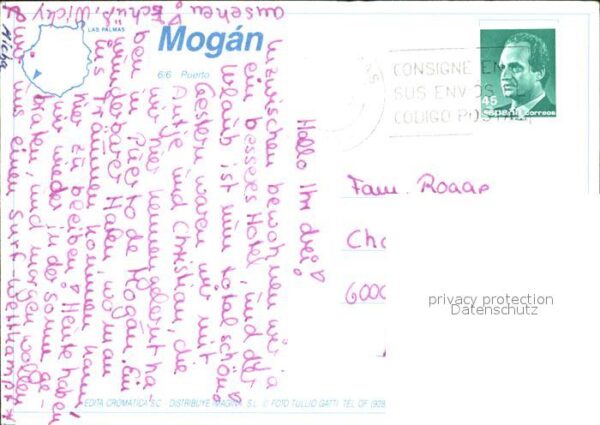 LAS PALMAS
Mogán
6/6 Puerto
CONSIGNE EN
SUS ENVIOS
CODIGO POSTAL
45
España correos
Hallo Ihr drei!
inzwischen bewohnen wir ja
ein besseres Hotel, und der
Urlaub ist nun total schön.
Gestern waren wir mit
Antje und Christian, die
wir hier kennengelernt ha-
ben in Puerto de Mogán. Ein
wunderbarer Hafen, wo man
ins Träumen kommen kann,
hier zu bleiben! Heute haben
wir wieder in der Sonne ge-
braten, und morgen wollen
wir uns einen Surf-Wettkampf
ansehen!
Tschüß, Wicky
Micha
Fam. Roaap
Cha
6000
privacy protection
Datenschutz
EDITA CROMATICA S.C. - DISTRIBUYE IMAGINA, S.L. © FOTO TULLIO GATTI. TEL. DF (928)